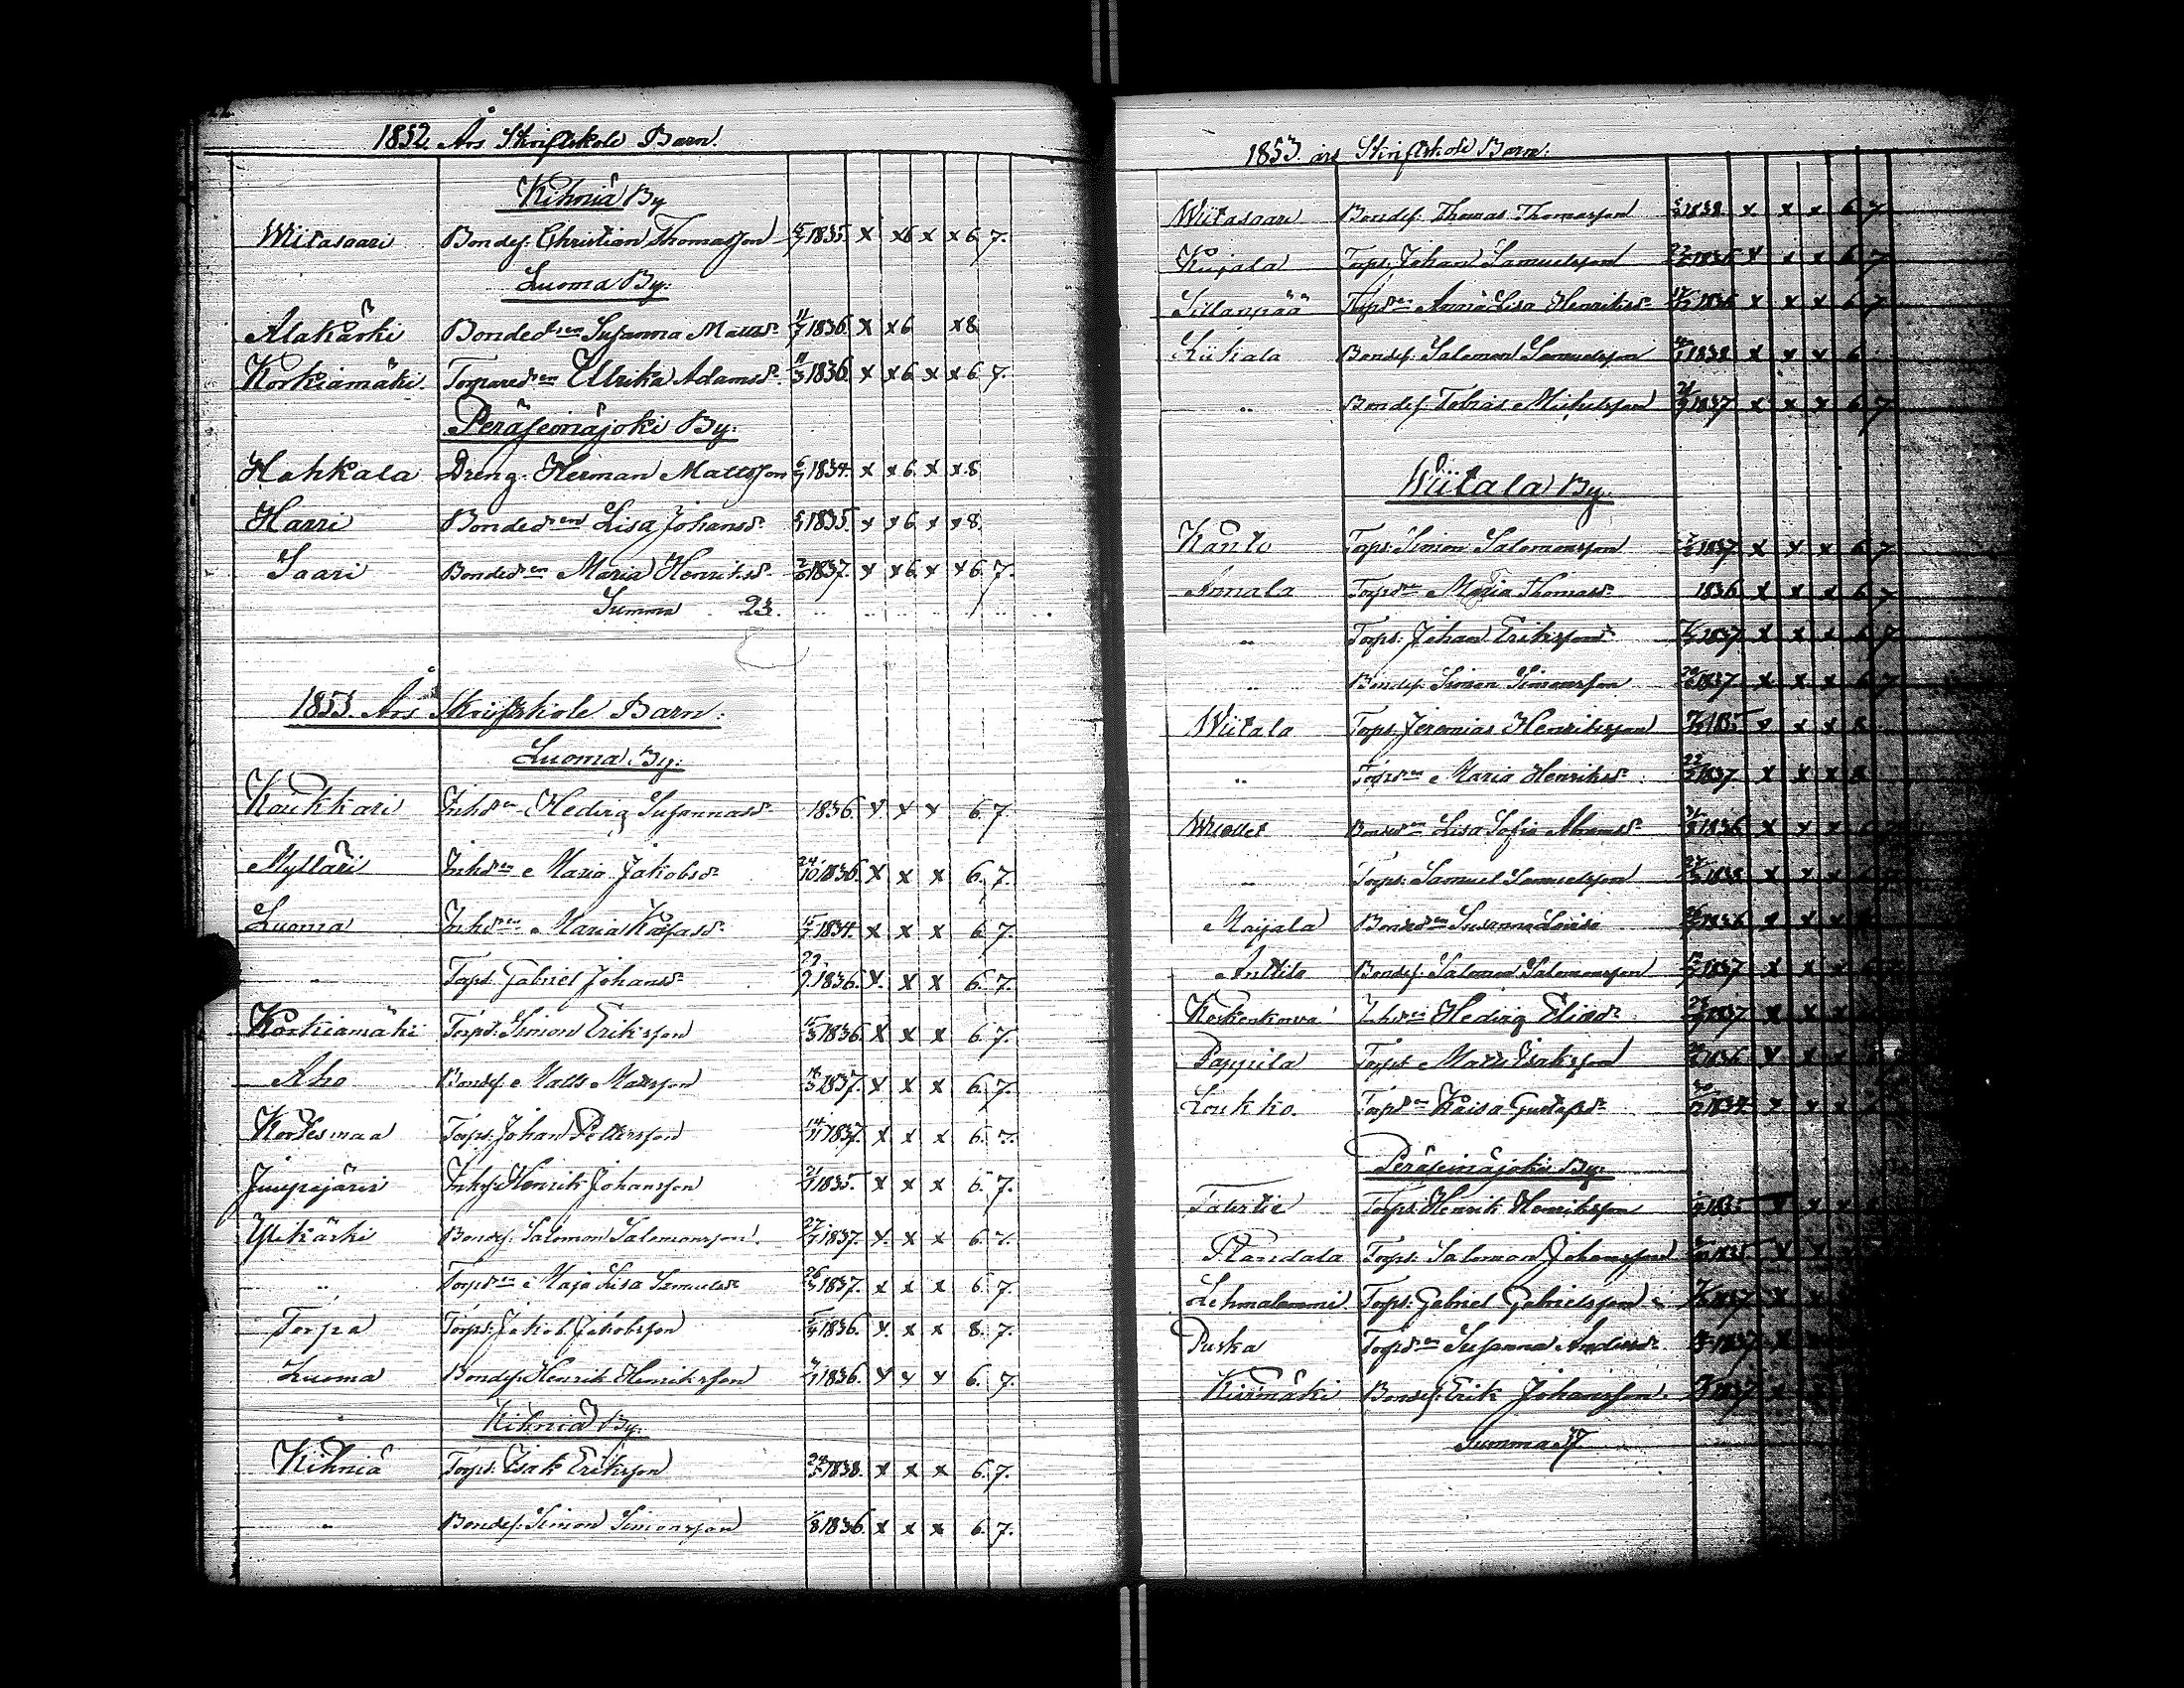 1852 Års Skriftskole Barn.
Kihniä By
Wiitasaari Bondes. Christian Thomasson 1835. x x6 x x 6. 7.
Luoma By.
Alakärki Bonded:en Susanna Mattsd:r 11/7 1836. x x 6 x 8
Korkiamäki. Torpared:en Ulrika Adamsd:r 11/3 1836. x x 6 x x 6 7.
Peräseinäjoki By.
Hahkala Dreng. Herman Mattsson 1834. x x 6. x x 8
Haari Bonded:en Lisa Johansd:r 1835. x x 6. x x 8.
Saari Bonded:en Maria Henriksd:r 1837. x x 6. x x 6. 7.
Summa 23.
1853. Års Skriftskole Barn:
Luoma By:
Koukkari Inhd:en Hedvig Susannasd:r 1836. x x x 6. 7.
Myllari Inhd:en Maria Jakobsd:r 24/10 1836. x x x 6. 7.
Luoma Inhd:en Maria 15/7 1834. x x x 6. 7.
" Torps. Gabriel Johans 1836. x. x x 6. 7.
Korkiamäki Torps: Simon Eriksson 15/3 1836. x x x 6. 7.
Aho Bondes. Matts Mattsson 18/3 1837. x x x 6. 7.
Kortesmaa Torps: Johan Pettersson 14/11 1837. x x x 6. 7.
Juupajärvi Inhs: Henrik Johansson 21/1 1835. x x x 6. 7.
Ylikärki Bondes. Salomon Salomonsson. 27/7 1837. x. x x 6. 7.
" Torpd:en Maja Lisa Samuelsd:r 1837. x x x 6. 7.
Torpa Torps: Jakob Jakobsson 1836. x. x x 8. 7.
Luoma Bondes. Henrik Henriksson 1836. x x x 6. 7.
Kihniä By.
Kihniä Torps: Isak Eriksson 1838. x x x 6. 7.
" Bondes. Simon Simonsson 1836. x x x 6. 7.
1853. års Skriftskole Barn:
Wiitasaari Bondes. Thomas Thomasson 1838 x x x 6 7
Kujala Torps: Johan Samuelsson 1836 x x x 6 7
Sillanpää Torpd:en Anna Lisa Henriksd:r 1836 x x x 6 7
Liikala Bondes. Salomon Samuelsson 1838 x x x 6
" Bondes. Tobias Michelsson 1837 x x x 6 7
Wiitala By.
Kanto Torps: Simon Salomonsson 1837 x x x 6 7
Annala Torpd:en Maria Thomasd:r 1836 x x x 6 7
" Torps: Johan Eriksson 1837 x x x 6 7
" Bondes. Simon Simonsson 1837 x x x 6 7
Wiitala Torps. Jeremias Henriksson x x x 8
" Torpd:en Maria Henriksd:r 1837 x x x 8
Bonded:en Lisa Sofia 1836 x x x
" Torps: Samuel Samuelsson 1838 x x x
Maijala Bonded:en Susanna Lovisa 1836 x x x
Anttila Bondes. Salomon Salomonsson 1837 x x x
Koskenkorva Inhd:en Hedvig Eliasd:r 1837 x x x
Pappila Torps Matts Isaksson 1836 x x x
Loukko. Torpd:en Kaisa Gustafsd:r 1834 x x x
Peräseinäjoki By.
Torps: Henrik Henriksson x x x
Torps: Salomon Johansson
Lehmalammi Torps: Gabriel Gabrielsson 1837 x x
Puska Torpd:en Susanna Andersd:r 1837 x
Kivimäki Bondes: Erik Johansson. 1837
Summa 37